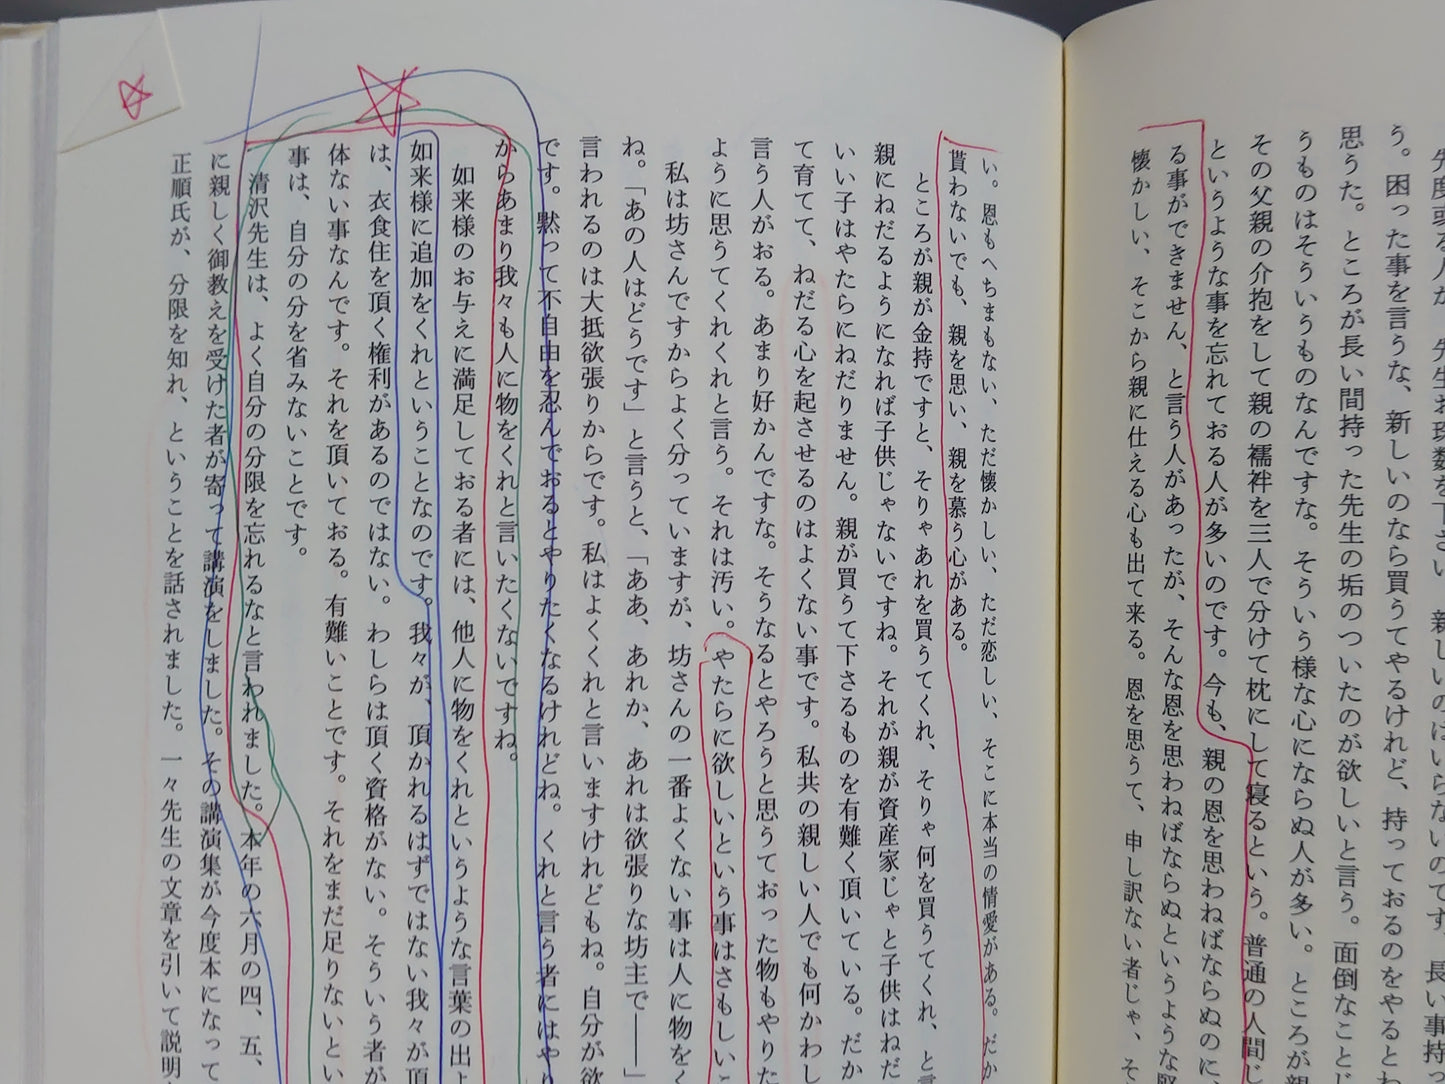 先度或る人が、先生お珠数を下さい、新しいのはいらないのです、長い事持っ
う。困った事を言うな、新しいのなら買うてやるけれど、持っておるのをやるとわ
思うた。ところが長い間持った先生の垢のついたのが欲しいと言う。面倒なことじ
うものはそういうものなんですな。そういう様な心にならぬ人が多い。ところが親
その父親の介抱をして親の襦袢を三人で分けて枕にして寝るという。普通の人間じ
というような事を忘れておる人が多いのです。今も、親の恩を思わねばならぬのに
る事ができません、と言う人があったが、そんな恩を思わねばならぬというような堅
懐かしい、そこから親に仕える心も出て来る。恩を思うて、申し訳ない者じゃ、そ
い。恩もへちまもない、ただ懐かしい、ただ恋しい、そこに本当の情愛がある。だか
貰わないでも、親を思い、親を慕う心がある。
ところが親が金持ですと、そりゃあれを買うてくれ、そりゃ何を買うてくれ、と言
親にねだるようになれば子供じゃないですね。それが親が資産家じゃと子供はねだ
いい子はやたらにねだりません。親が買うて下さるものを有難く頂いている。だか
て育てて、ねだる心を起させるのはよくない事です。私共の親しい人でも何かわし
言う人がおる。あまり好かんですな。そうなるとやろうと思うておった物もやりた
ように思うてくれくれと言う。それは汚い。やたらに欲しいという事はさもしいこ
私は坊さんですからよく分っていますが、坊さんの一番よくない事は人に物をく
ね。「あの人はどうです」と言うと、「ああ、あれか、あれは欲張りな坊主で――」
言われるのは大抵欲張りからです。私はよくくれと言いますけれどもね。自分が欲
です。黙って不自由を忍んでおるとやりたくなるけれどね。くれと言う者にはやり
からあまり我々も人に物をくれと言いたくないですね。
如来様のお与えに満足しておる者には、他人に物をくれというような言葉の出よ
如来様に追加をくれということなのです。我々が、頂かれるはずではない我々が頂
は、衣食住を頂く権利があるのではない。わしらは頂く資格がない。そういう者が
体ない事なんです。それを頂いておる。有難いことです。それをまだ足りないとい
事は、自分の分を省みないことです。
清沢先生は、よく自分の分限を忘れるなと言われました。本年の六月の四、五、
に親しく御教えを受けた者が寄って講演をしました。その講演集が今度本になって
正順氏が、分限を知れ、ということを話されました。一々先生の文章を引いて説明